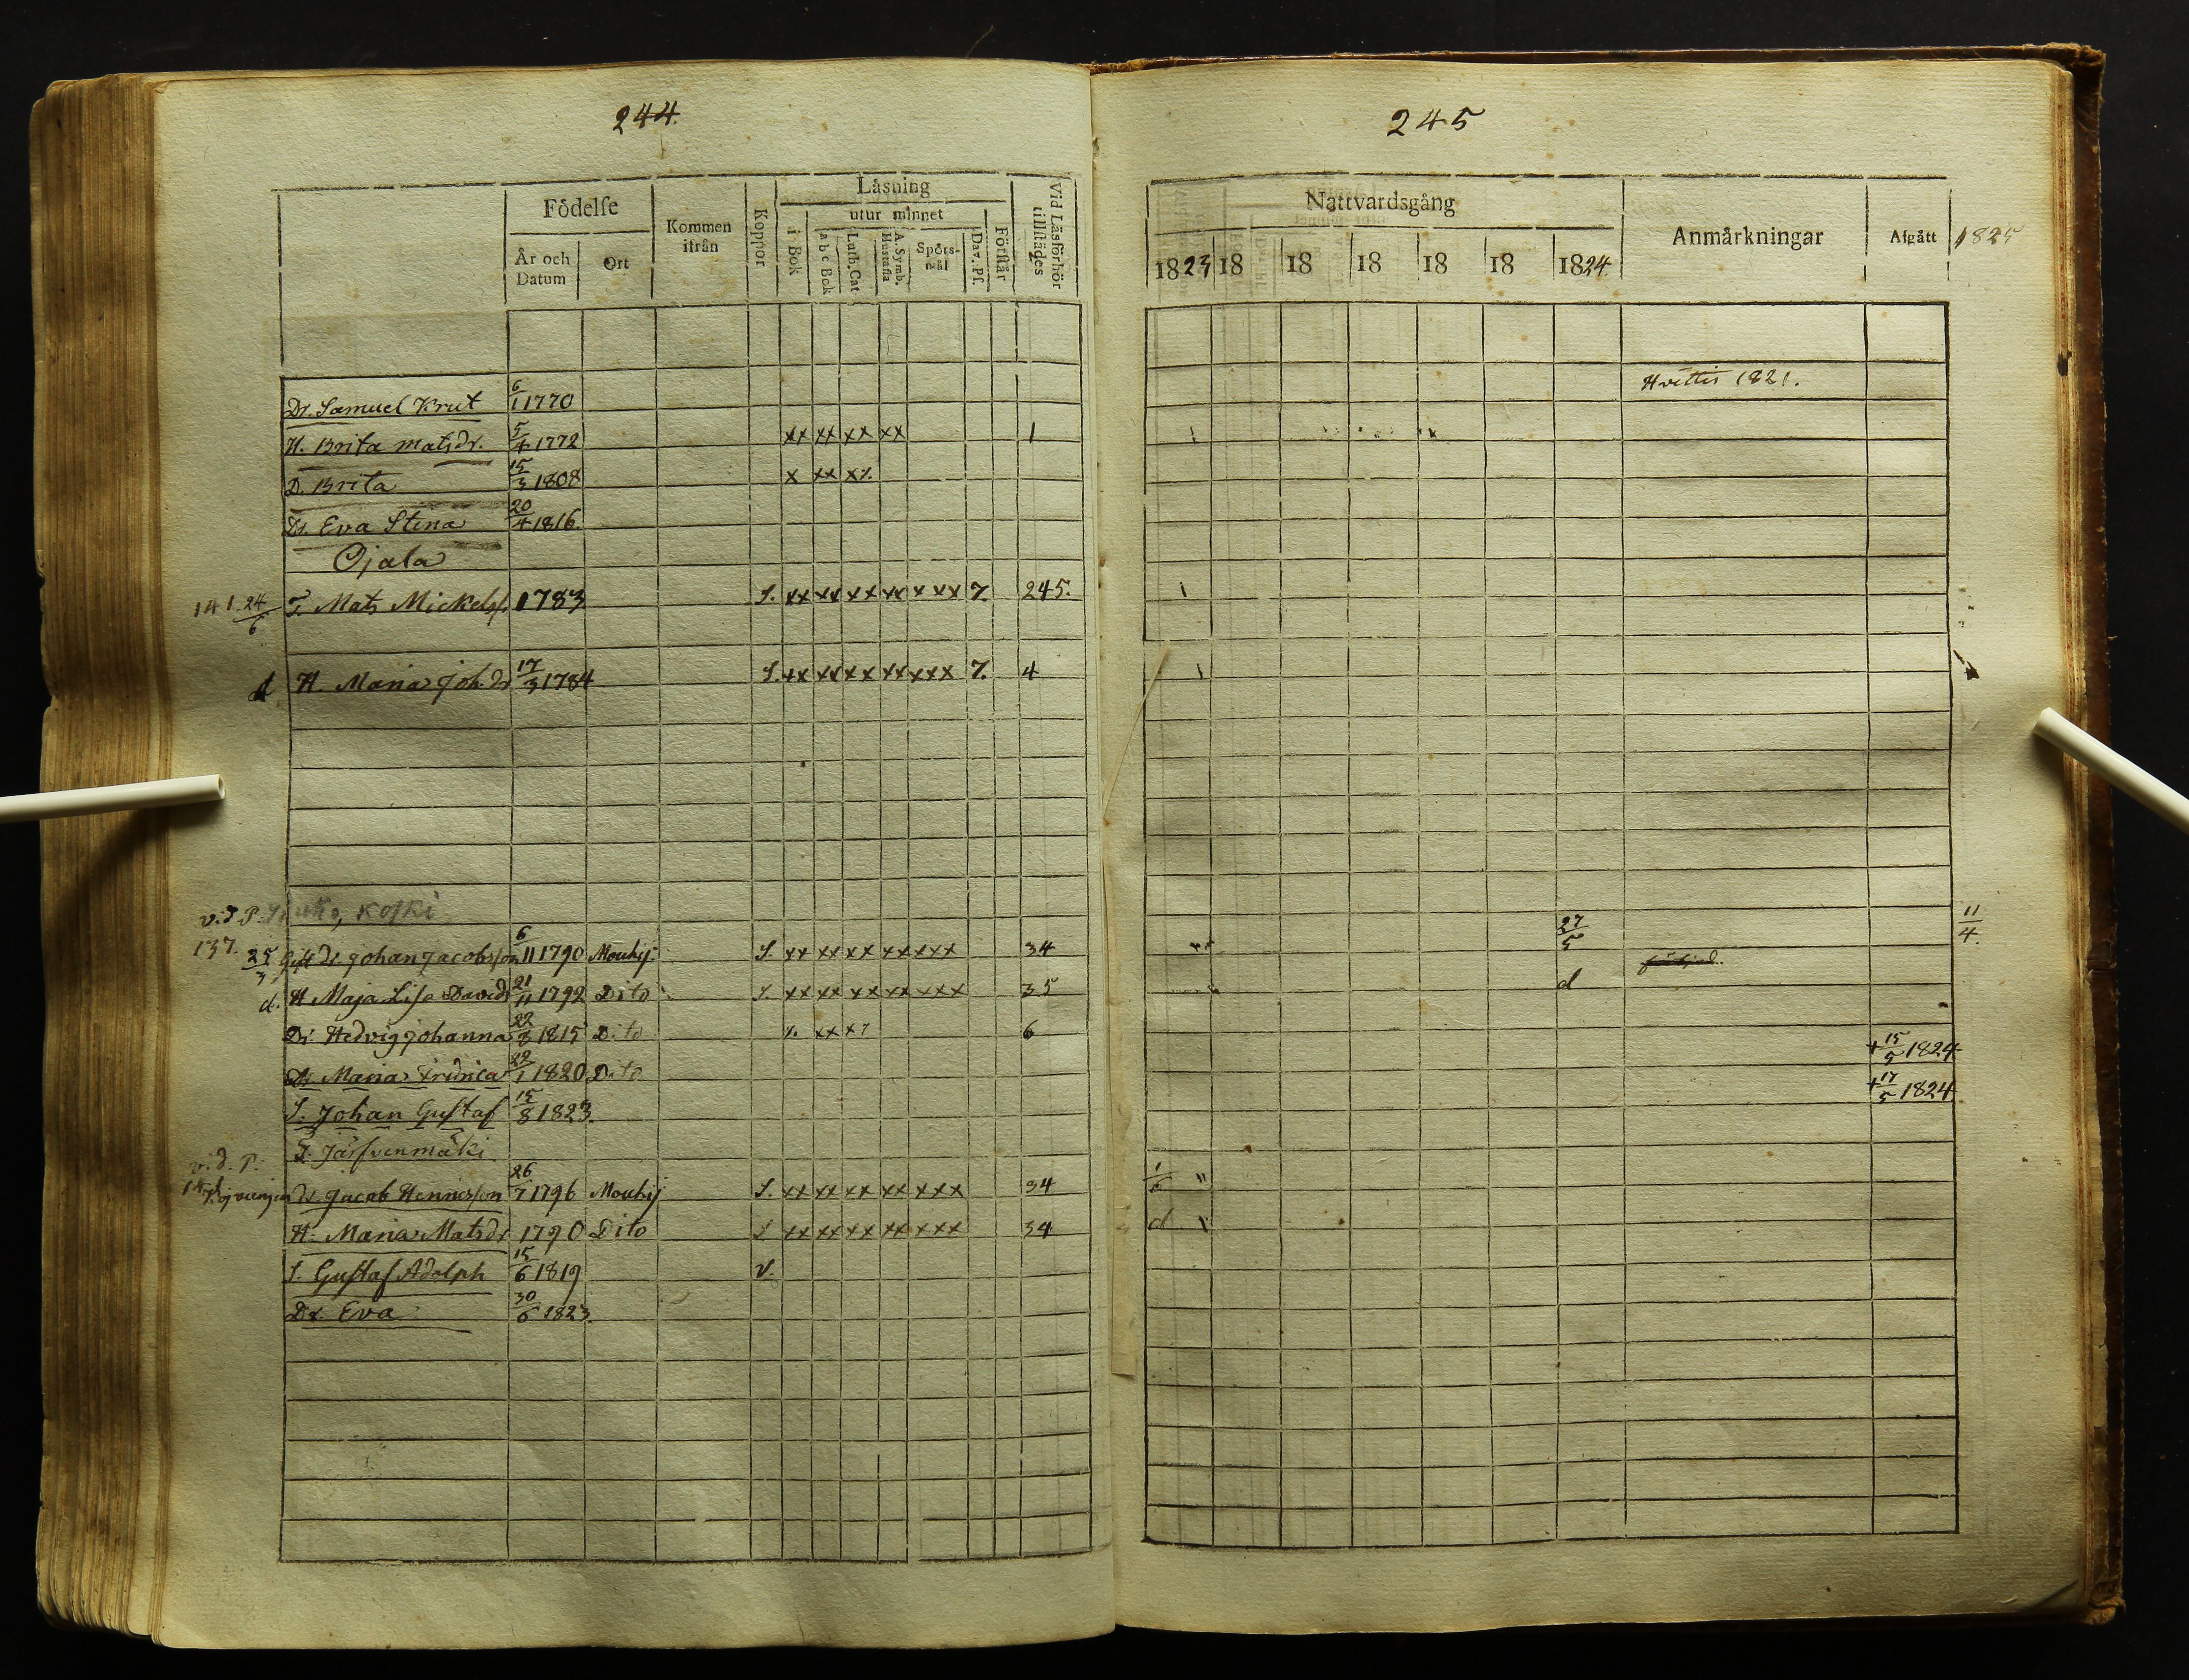 244.
Födelse
År och Datum
Ort
Kommen ifrån
Koppor
Läsning
i Bok
utur minnet
a b c Bok
Luth. Cat.
A. Symb. Hustafla
Spörs-mål
Dav. Ps.
Förstår
Vid Läsförhör tillstädes
Dr. Samuel Krut 6/1 1770
H. Brita Matsdr. 5/4 1772 xx xx xx xx 1
D. Brita 15/3 1808 x xx x7.
Dr. Eva Stina 20/4 1816.
Ojala
141. 24/6 T. Mats Mickelss. 1783 S. xx xx xx xx x xx 7. 245.
d H. Maria Joh. dr 17/3 1784 S. xx xx xx xx xxx 7. 4
v. d. P. koski
137. 25/3 Gift dr. Johan Jacobsson 6/11 1790 Mouhij. S. xx xx xx xx xxx 34
d. H Maja Lisa Davidr 21/11 1792 Dito S. xx xx xx xx xxx 35
Dr. Hedvig Johanna 22/8 1815 Dito 7. xx x7 6
Dr Maria Fridrica 22/1 1820 Dito
S. Johan Gustaf 15/8 1823.
T. Järfvenmäki
v. d. P.
dr. Jacob Henricsson 26/7 1796 Mouhij S. xx xx xx xx xxx 34
H. Maria Matsdr 1790 Dito S xx xx xx xx xxx 34
S. Gustaf Adolph 15/6 1819 V.
Dr. Eva 30/6 1823.
245
Nattvardsgång
1823 18 18 18 18 18 1824
Anmärkningar
Afgått
1825
Hvittis 1821.
1
1
1
27/5
11/4.
d
+ 15/5 1824
+ 17/5 1824
1/6 "
d 1